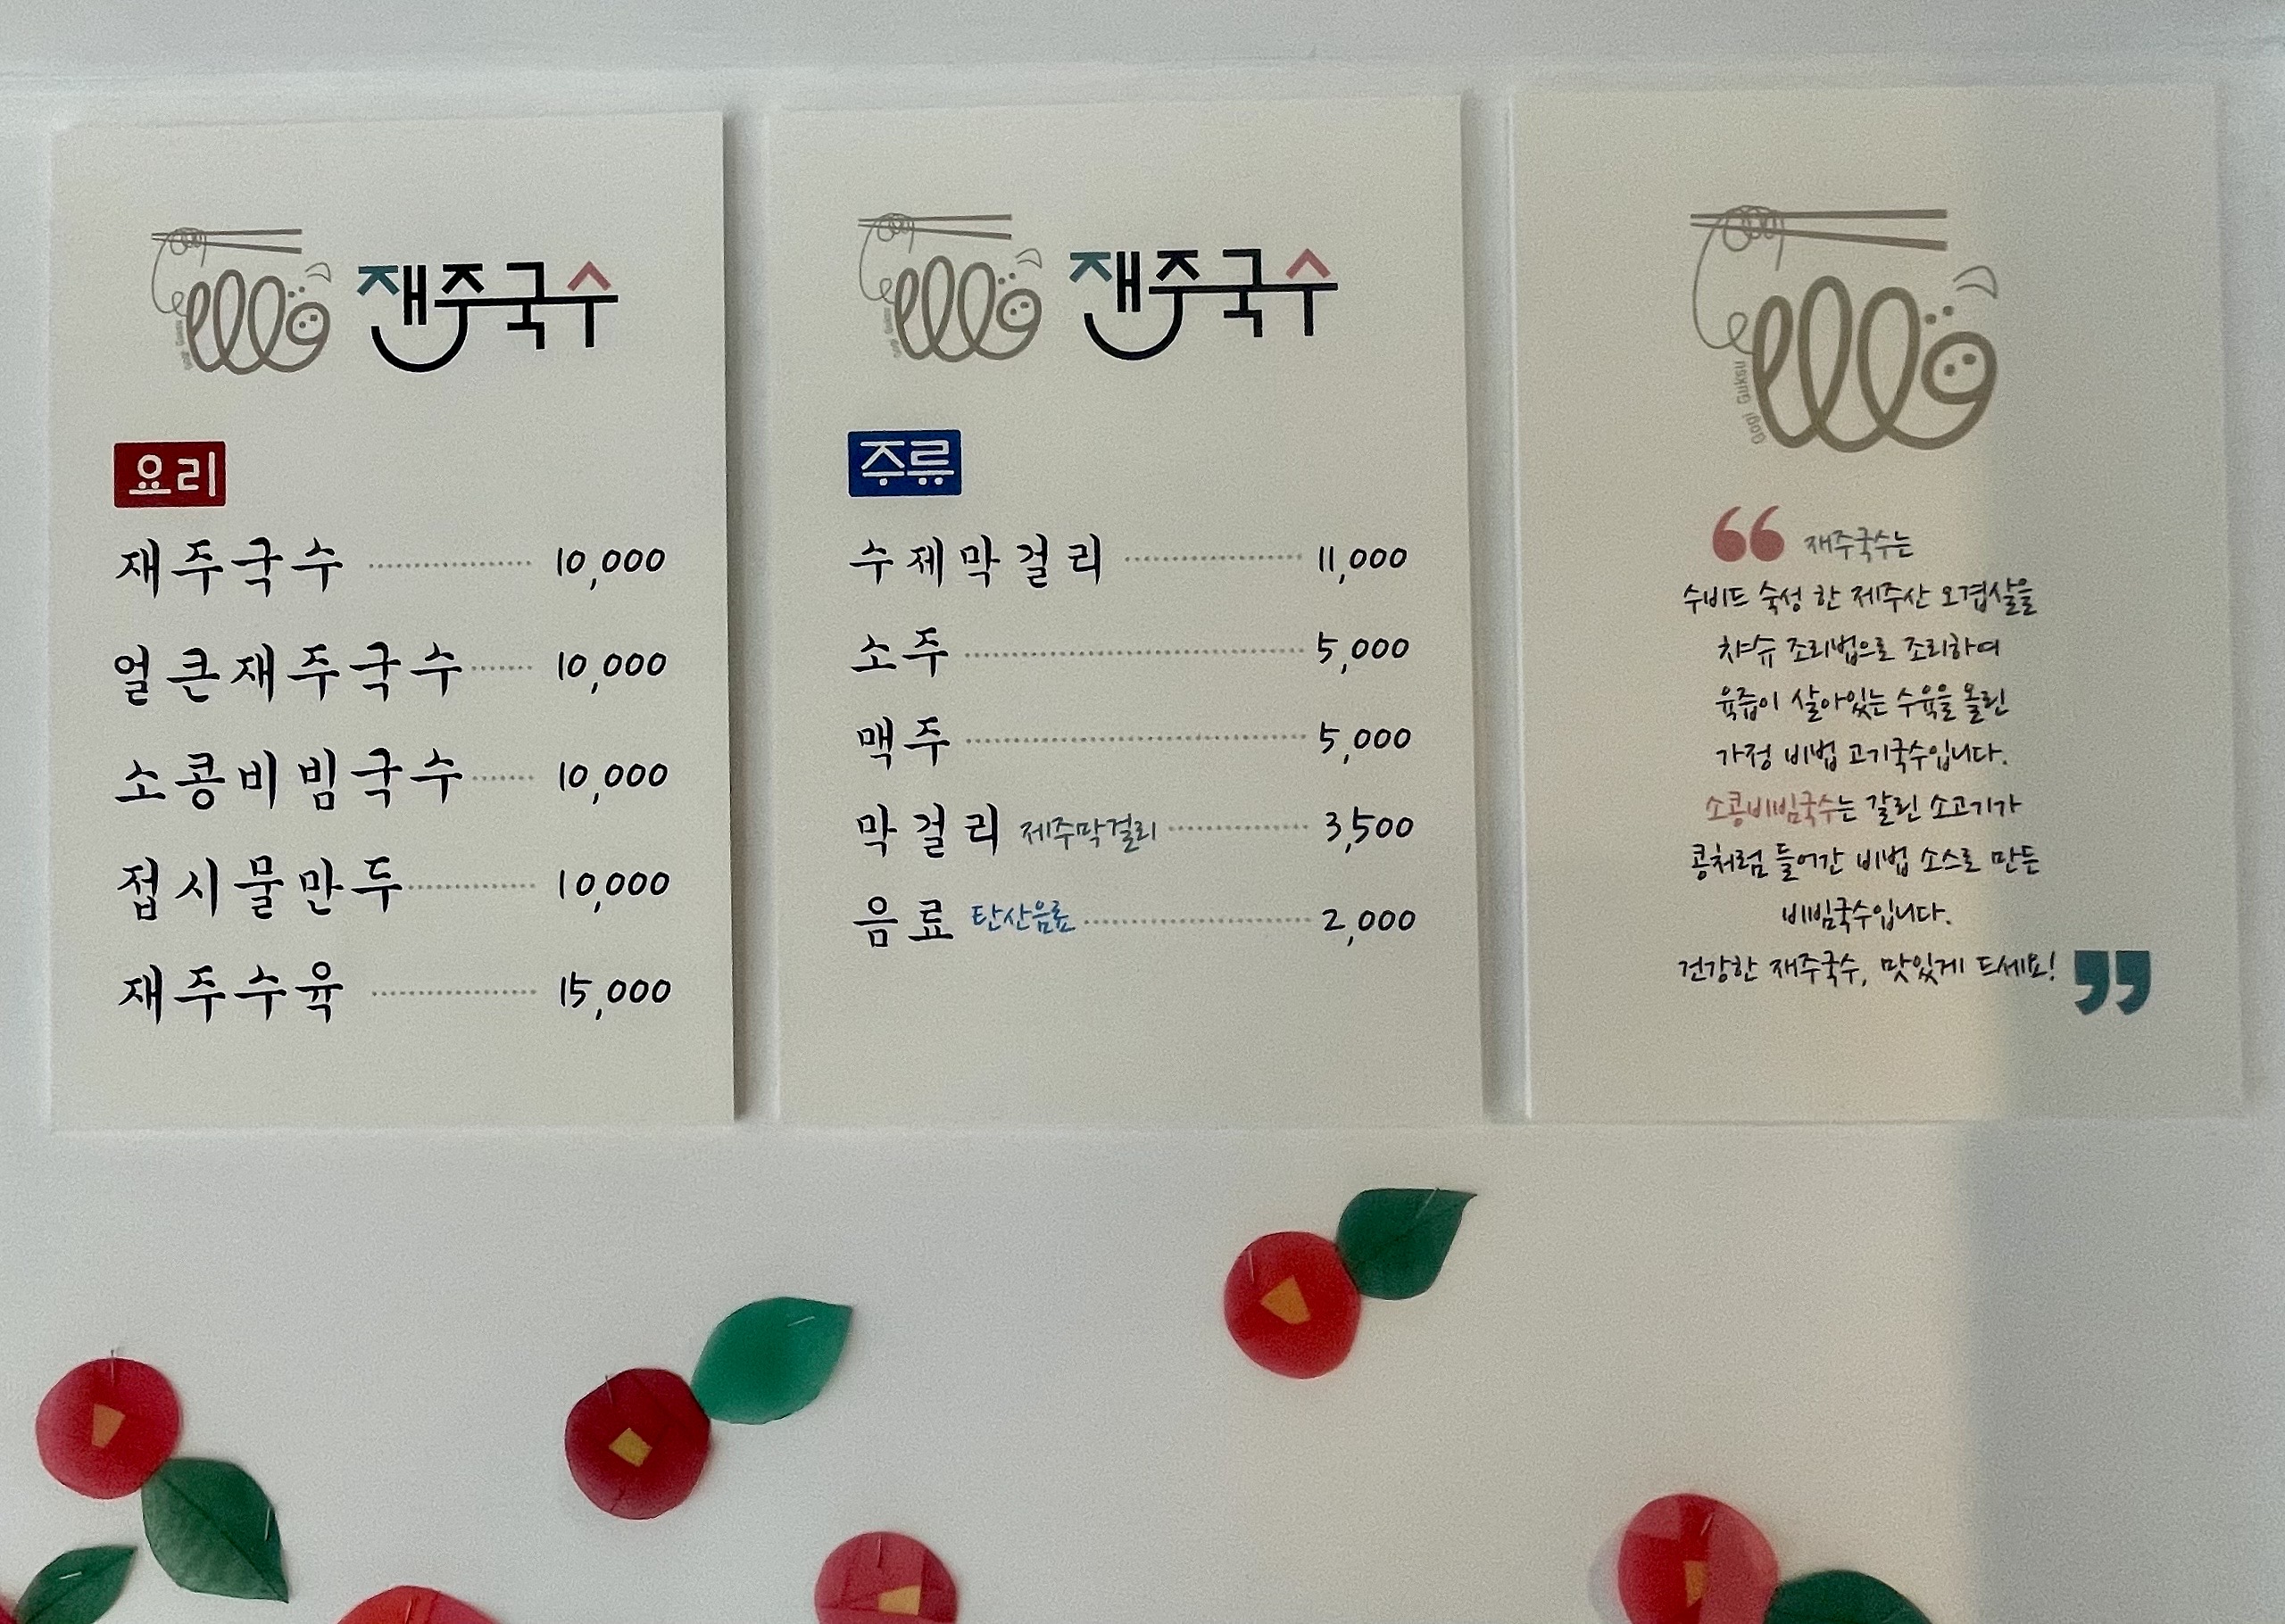 재주국수
요리
재주국수 10,000
얼큰재주국수 10,000
소콩비빔국수 10,000
접시물만두 10,000
재주수육 15,000
재주국수
주류
수제막걸리 11,000
소주 5,000
맥주 5,000
막걸리 제주막걸리 3,500
음료 탄산음료 2,000
Gogi Guksu
“ 재주국수는
수비드 숙성 한 제주산 오겹살을
챠슈 조리법으로 조리하여
육즙이 살아있는 수육을 올린
가정 비법 고기국수입니다.
소콩비빔국수는 갈린 소고기가
콩처럼 들어간 비법 소스로 만든
비빔국수입니다.
건강한 재주국수, 맛있게 드세요! ”